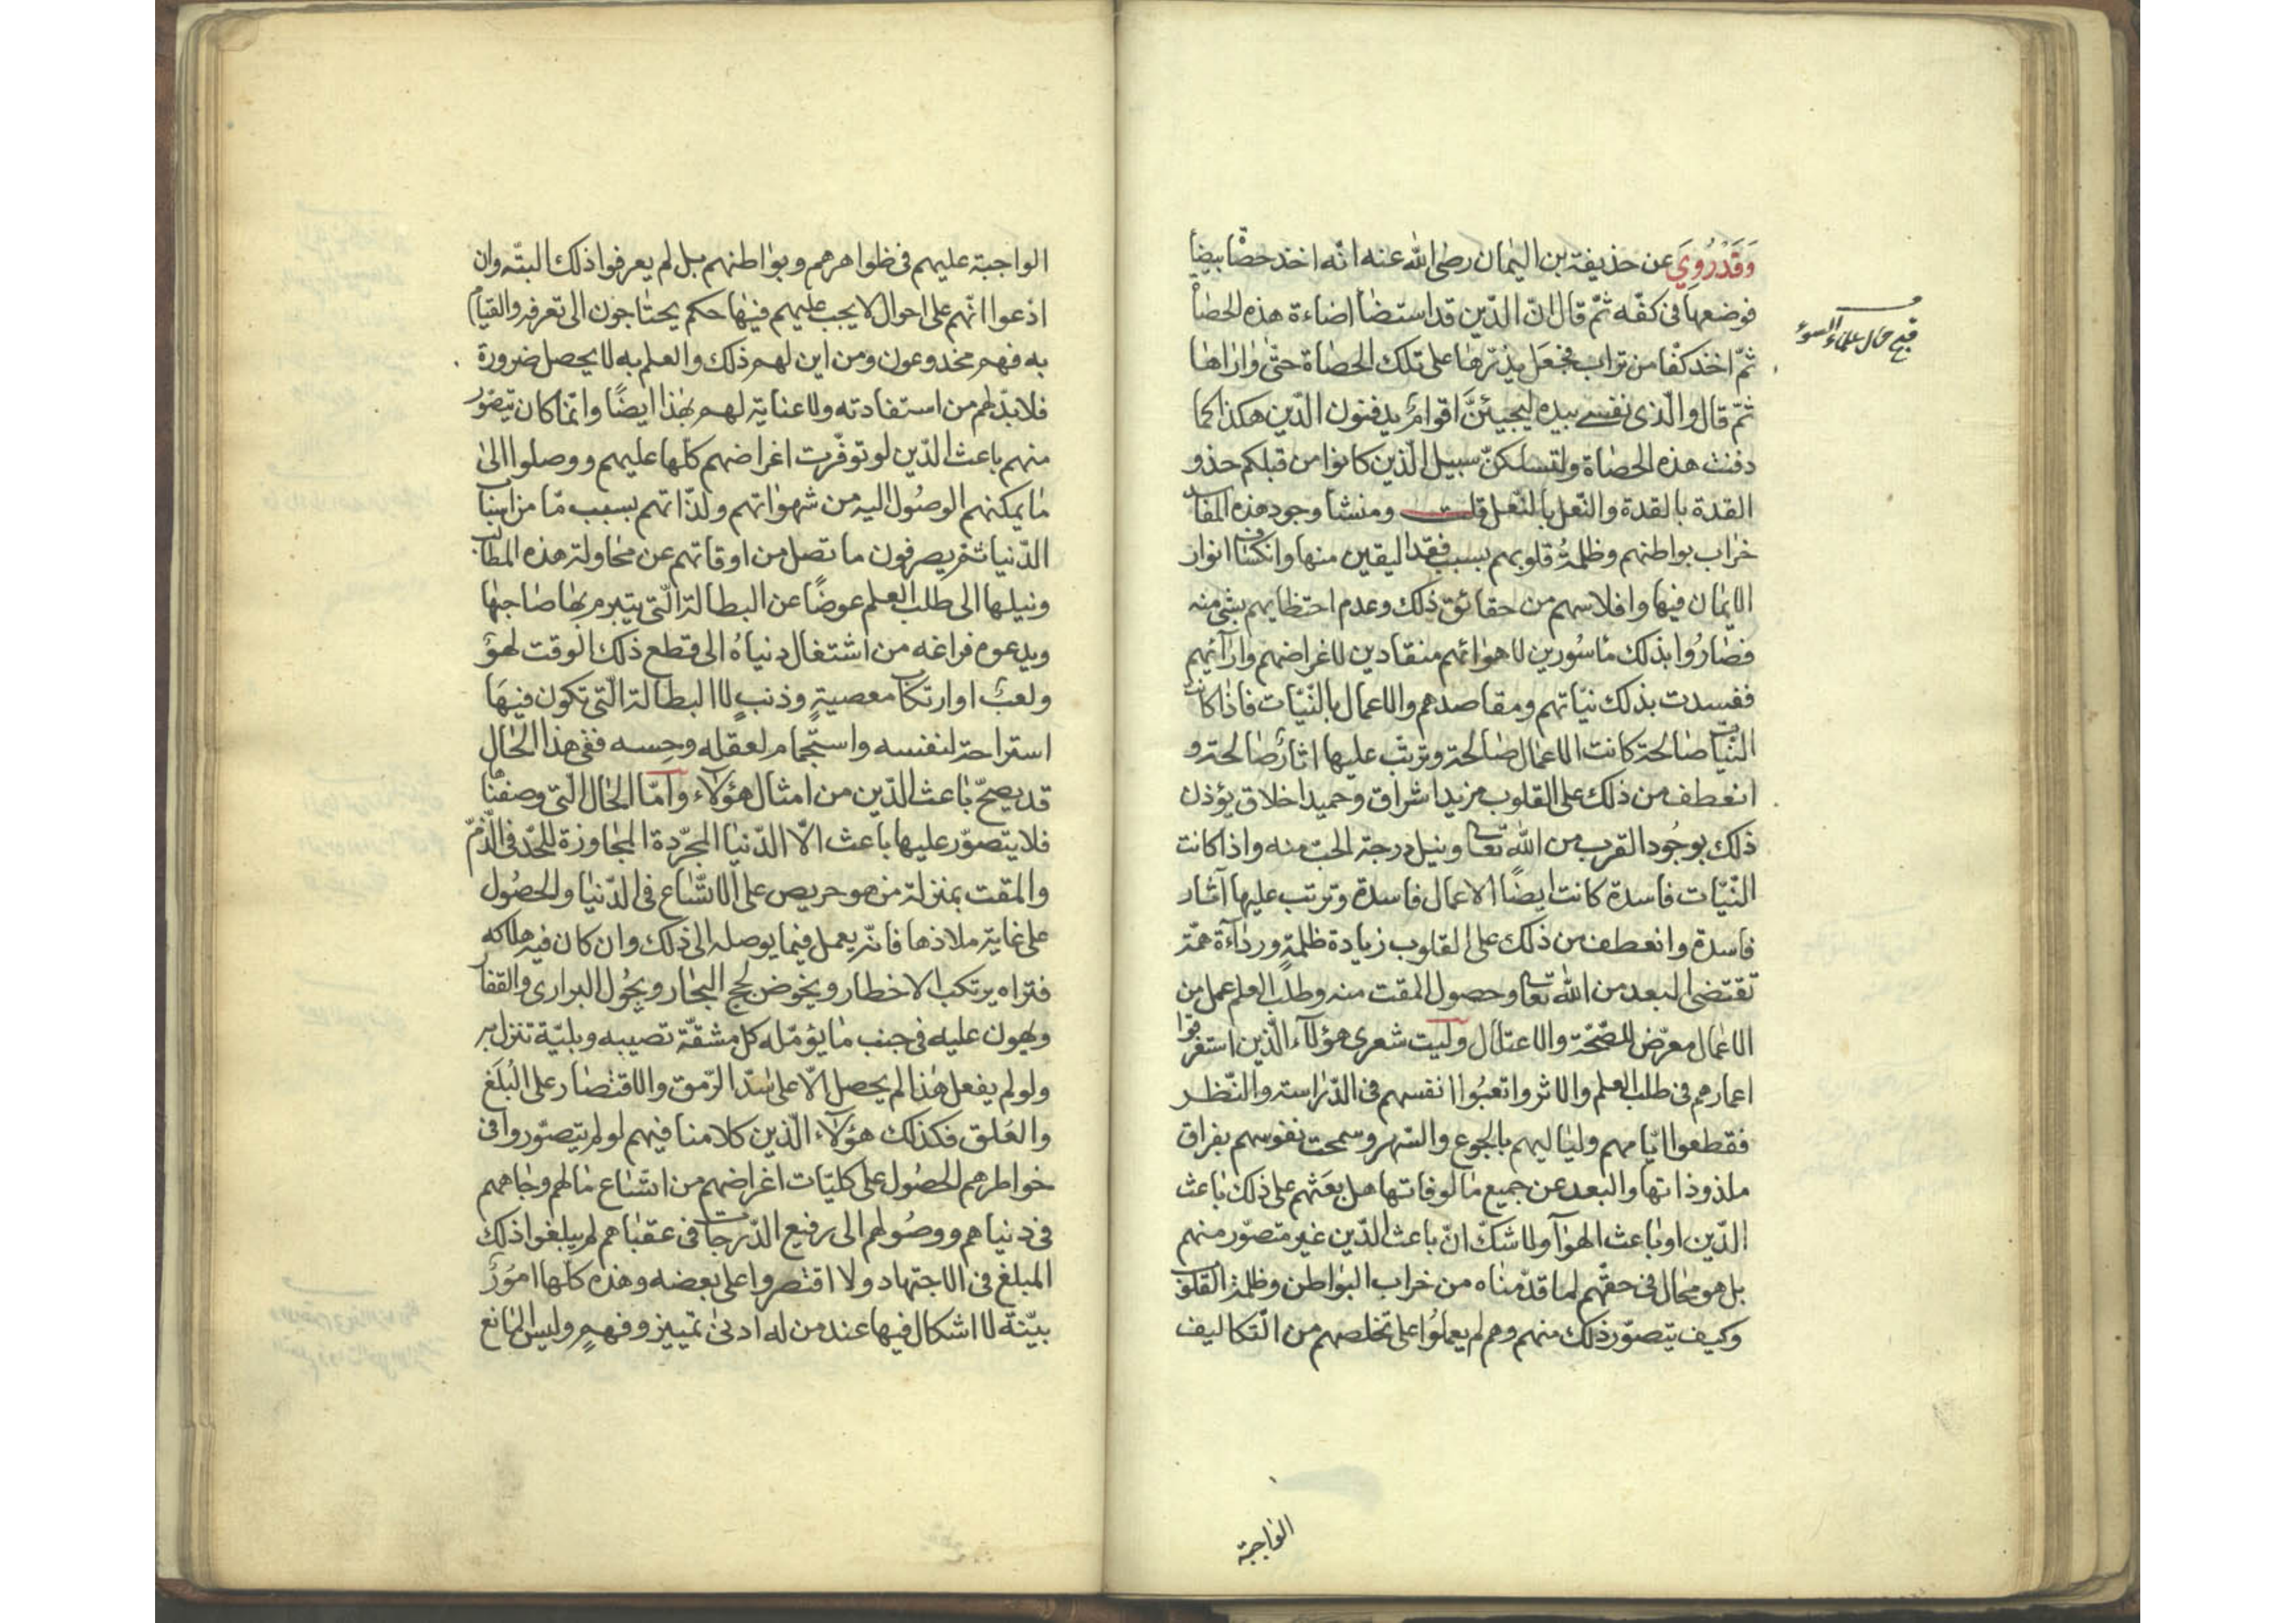 وَقَدْرُوِيَ عن حذيفة بن اليمان رضى الله عنه انّه اخذ حصًا بيضا
فوضعها فى كفّه ثمّ قال انّ الدّين قد استضا اضاءة هذه الحصا
ثمّ اخذ كفّا من تراب فجعل يذرّها على تلك الحصاة حتّى واراها
ثمّ قال والّذى نفسى بيده ليجيئنَّ اقوامٌ يدفنون الدّين هكذا كما
دفنت هذه الحصاة ولتسلكنّ سبيل الّذين كانوا من قبلكم حذو
القذة بالقذة والنّعل بالنّعل قلت ومنشأ وجود هذه المفاسد
خراب بواطنهم وظلمةُ قلوبهم بسبب فقد اليقين منها وانكساف انوار
الايمان فيها وافلاسهم من حقائق ذلك وعدم احتظايهم بشئ منه
فصاروا بذلك مأسورين لاهوائهم منقادين لاغراضهم وارآئهم
ففسدت بذلك نيّاتهم ومقاصدهم والاعمال بالنّيّات فاذا كانت
النّيّات صالحة كانت الاعمال صالحة وترتّب عليها اثارٌ صالحة و
انعطف من ذلك على القلوب مزيد اشراق وحميد اخلاق يؤذن
ذلك بوجود القرب من الله تعا وبنيل درجة الحب منه واذا كانت
النّيّات فاسدة كانت ايضًا الاعمال فاسدة وترتب عليها آثار
فاسدة وانعطف من ذلك على القلوب زيادة ظلمةٍ ورداءة همّة
تقتضى البعد من الله تعا وحصول المقت منه وطلب العلم عمل من
الاعمال معرّض للصّحّة والاعتلال وليت شعرى هؤلآء الّذين استغرقوا
اعمارهم فى طلب العلم والاثر واتعبوا انفسهم فى الدّراسة والنّظر
فقطعوا ايّامهم ولياليهم بالجوع والسّهر وسمحت نفوسهم بفراق
ملذوذاتها والبعد عن جميع مالوفاتها هل بعَثهم على ذلك باعث
الدّين او باعث الهوآ ولا شكّ انّ باعث الدّين غير متصوّر منهم
بل هو محال فى حقّهم لما قدّمناه من خراب البواطن وظلمة القلوب
وكيف يتصوّر ذلك منهم وهم لم يعملوا على تخلصهم من التّكاليف
قبح حال علماء السوء
الواجبة
الواجبة عليهم فى ظواهرهم وبواطنهم بل لم يعرفوا ذلك البتّه وان
ادّعوا انّهم على احوال لا يجب عليهم فيها حكم يحتاجون الى تعرفه والقيام
به فهم مخدوعون ومن اين لهم ذلك والعلم به لا يحصل ضرورة
فلا بدّ لهم من استفادته ولا عناية لهم بهذا ايضًا وانّما كان يتصوّر
منهم باعث الدّين لو توفّرت اغراضهم كلّها عليهم ووصلوا الى
ما يمكنهم الوصول اليه من شهواتهم ولذّاتهم بسبب مّا من اسباب
الدّنيا ثم يصرفون ما تصل من اوقاتهم عن محاولة هذه المطالب
ونيلها الى طلب العلم عوضًا عن البطالة الّتى يتبرم بها صاحبها
ويدعوه فراغه من اشتغال دنياهُ الى قطع ذلك الوقت لهوٍ
ولعبٍ او ارتكاب معصيةٍ وذنبٍ لا البطالة الّتى تكون فيها
استراحة لنفسه واستجمام لعقله وحسه ففى هذا الحال
قد يصحّ باعث الدّين من امثال هؤلاء وامّا الحال الّتى وصفناها
فلا يتصوّر عليها باعث الّا الدّنيا المجرّدة المجاوزة للحدّ فى الذّمّ
والمقت بمنزلة من هو حريص على الاتّساع فى الدّنيا والحصول
على غاية ملاذها فانّه يعمل فيما يوصله الى ذلك وان كان فيه هلاكه
فتراه يرتكب الاخطار ويخوض لجج البحار ويجول البرارى والقفار
ويهون عليه فى جنب ما يؤمّله كل مشقّة تصيبه وبليّة تنزل به
ولو لم يفعل هذا لم يحصل الّا على سَدّ الرّمق والاقتصار على البُلَغ
والعُلق فكذلك هؤلآء الّذين كلامنا فيهم لو لم يتصوّروا فى
خواطرهم الحصول على كليّات اغراضهم من اتساع مالهم وجاههم
فى دنياهم ووصولهم الى رفيع الدّرجات فى عقباهم لم يبلغوا ذلك
المبلغ فى الاجتهاد ولا اقتصروا على بعضه وهذه كلّها امورٌ
بيّنةٌ لا اشكال فيها عند من له ادنى تمييز وفهمٍ وليس المانع